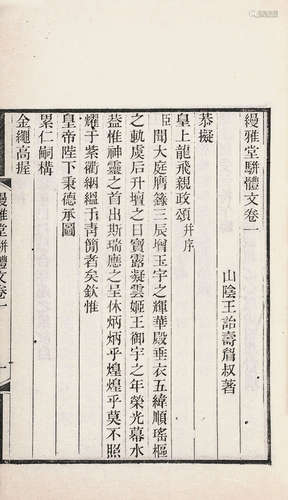 縵雅堂駢體文卷一
山陰王詒壽眉叔著
恭擬
皇上龍飛親政頌并序
臣聞大庭膺籙三辰增玉宇之輝華殿垂衣五緯順瑤樞
之軌虞后升壇之日寶露凝雲姬王御宇之年榮光幕水
葢惟神靈之首出斯瑞應之呈休炳炳乎煌煌乎莫不照
耀于紫衢絪縕于青簡者矣欽惟
皇帝陛下秉德承圖
累仁嗣構
金繩高握
縵雅堂駢體文卷一
一